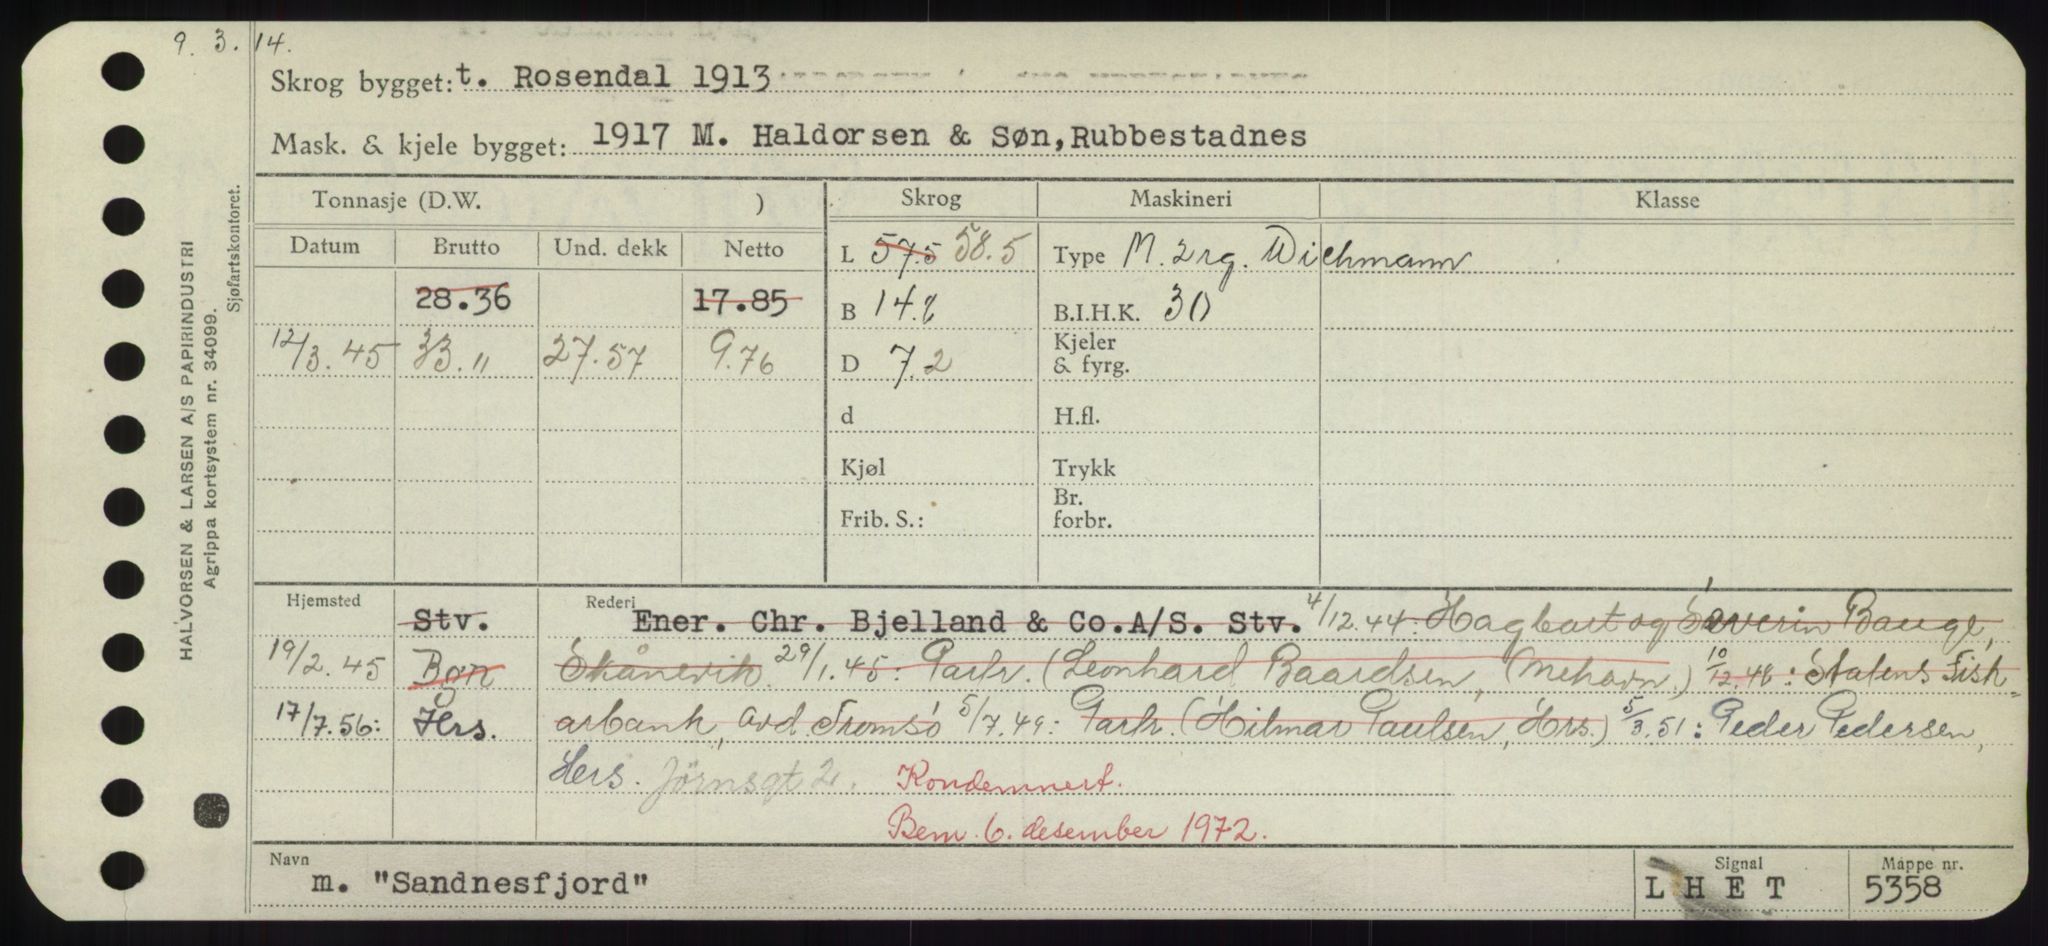 9. 3. 14.
Skrog bygget: t. Rosendal 1913
Mask. & kjele bygget: 1917 M. Haldorsen & Søn, Rubbestadnes
Tonnasje (D.W. ) Skrog Maskineri Klasse
Datum Brutto Und. dekk Netto
L 57.5 58.5 Type M. 2 rg. Wichmann
28.36 17.85 B 14.8 B.I.H.K. 30
12/3.45 33.11 27.57 9.76 D 7.2 Kjeler
& fyrg.
d H.fl.
Kjøl Trykk
Frib. S.: Br.
forbr.
Hjemsted Rederi
Stv. Ener. Chr. Bjelland & Co.A/S. Stv. 4/12.44: Hagbart og Severin Bauge,
19/2.45 Bgn Skånevik 29/1.45: Partr. (Leonhard Baardsen, (Mehavn.) 10/12.48: Statens Fisk-
17/7.56: Hrs. arbank, avd. Tromsö 5/7.49: Partr. (Hilmar Paulsen, Hrs.) 5/3.51: Peder Pedersen,
Hers. Jörnsgt 2. Kondemnert.
Bem. 6. desember 1972.
Navn Signal Mappe nr.
m. "Sandnesfjord" L H E T 5358
HALVORSEN & LARSEN A/S PAPIRINDUSTRI
Agrippa kortsystem nr. 34099.
Sjøfartskontoret.